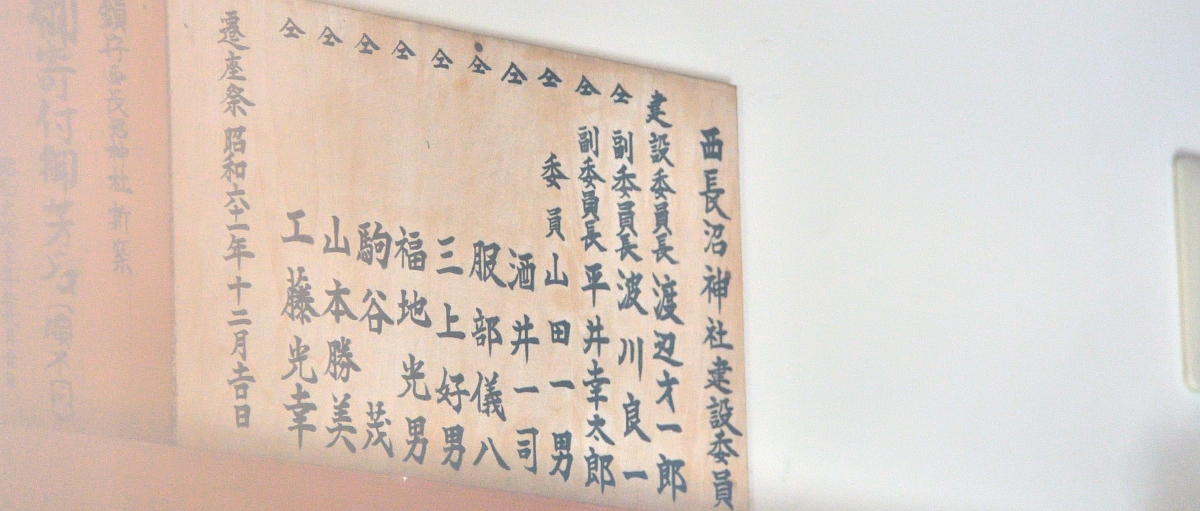 西長沼神社建設委員
建設委員長 渡辺才一郎
仝 副委員長 波川良一
仝 副委員長 平井幸太郎
仝 委員 山田一男
仝 酒井一司
仝 服部儀八
仝 三上好男
仝 福地光男
仝 駒谷 茂
仝 山本勝美
仝 工藤光幸
遷座祭 昭和六十一年十二月吉日
鎮守西長沼神社新築
御寄付御芳名(順不同)